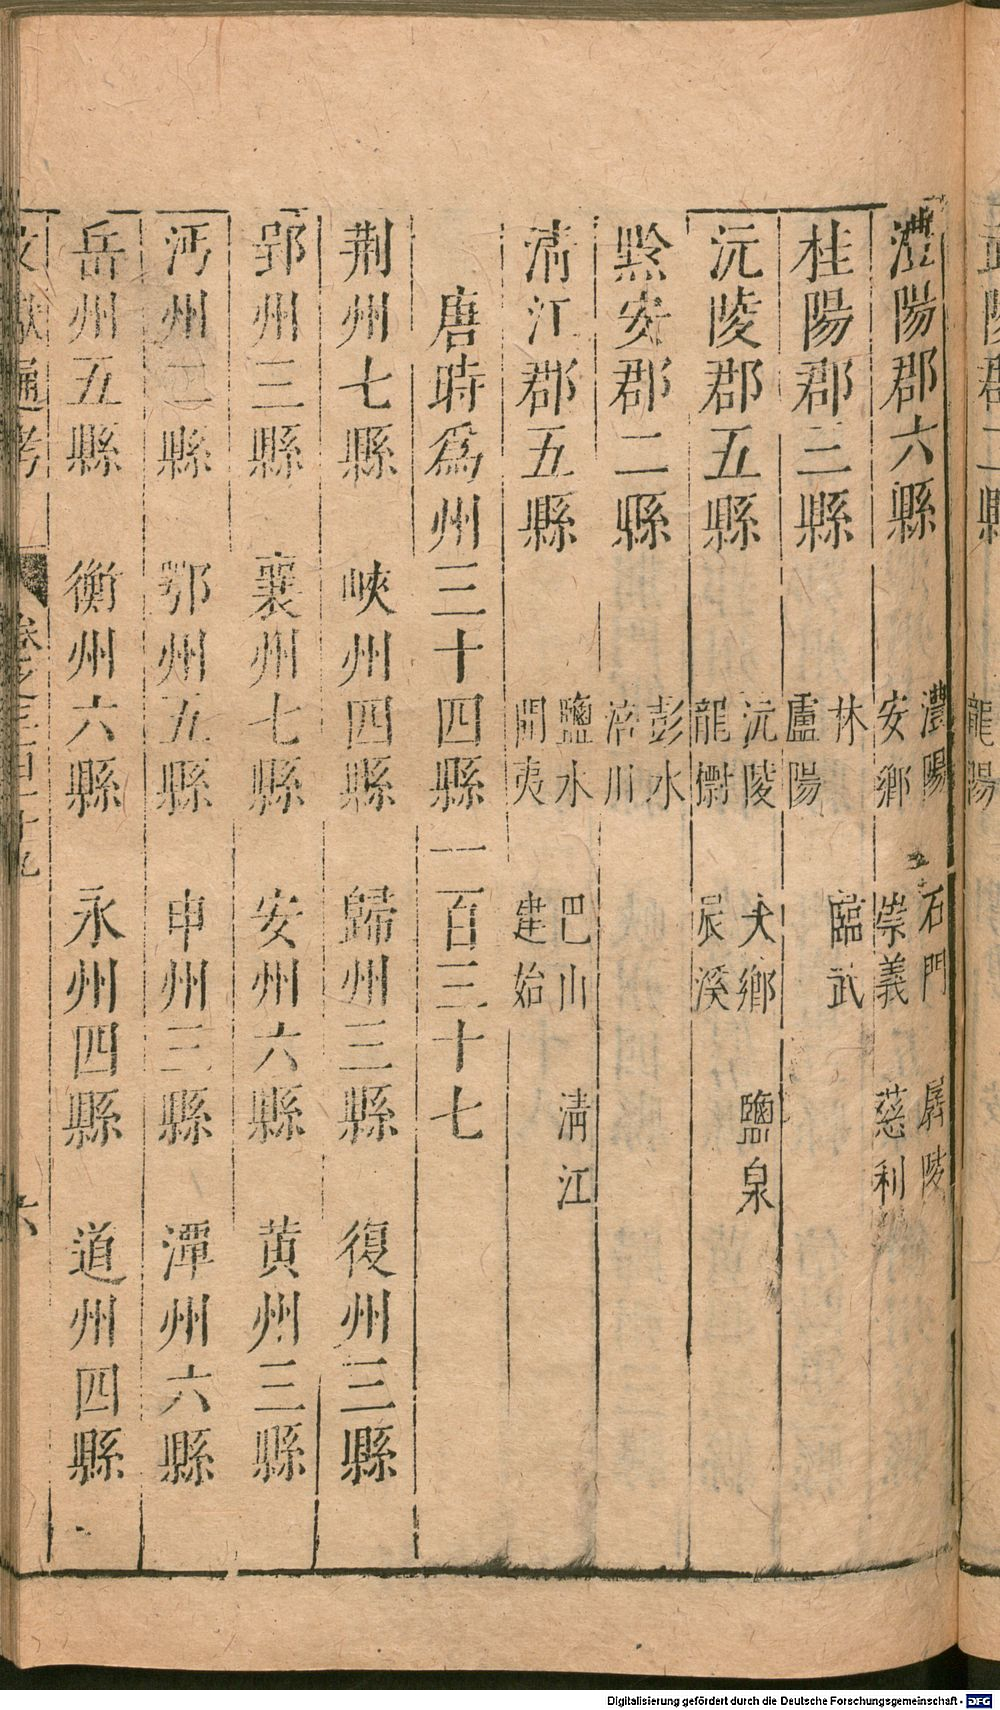 武陵郡二縣
龍陽
澧陽郡六縣
澧陽　石門　孱陵
安鄉　崇義　慈利
桂陽郡三縣
林　臨武
盧陽
沅陵郡五縣
沅陵　大鄉　鹽泉
龍檦　辰溪
黔安郡二縣
彭水
涪川
清江郡五縣
鹽水　巴山　清江
開夷　建始
唐時爲州三十四縣一百三十七
荆州七縣　峽州四縣　歸州三縣　復州三縣
郢州三縣　襄州七縣　安州六縣　黄州三縣
沔州二縣　鄂州五縣　申州三縣　潭州六縣
岳州五縣　衡州六縣　永州四縣　道州四縣
文獻通考　卷之三百十九　六
Digitalisierung gefördert durch die Deutsche Forschungsgemeinschaft - DFG